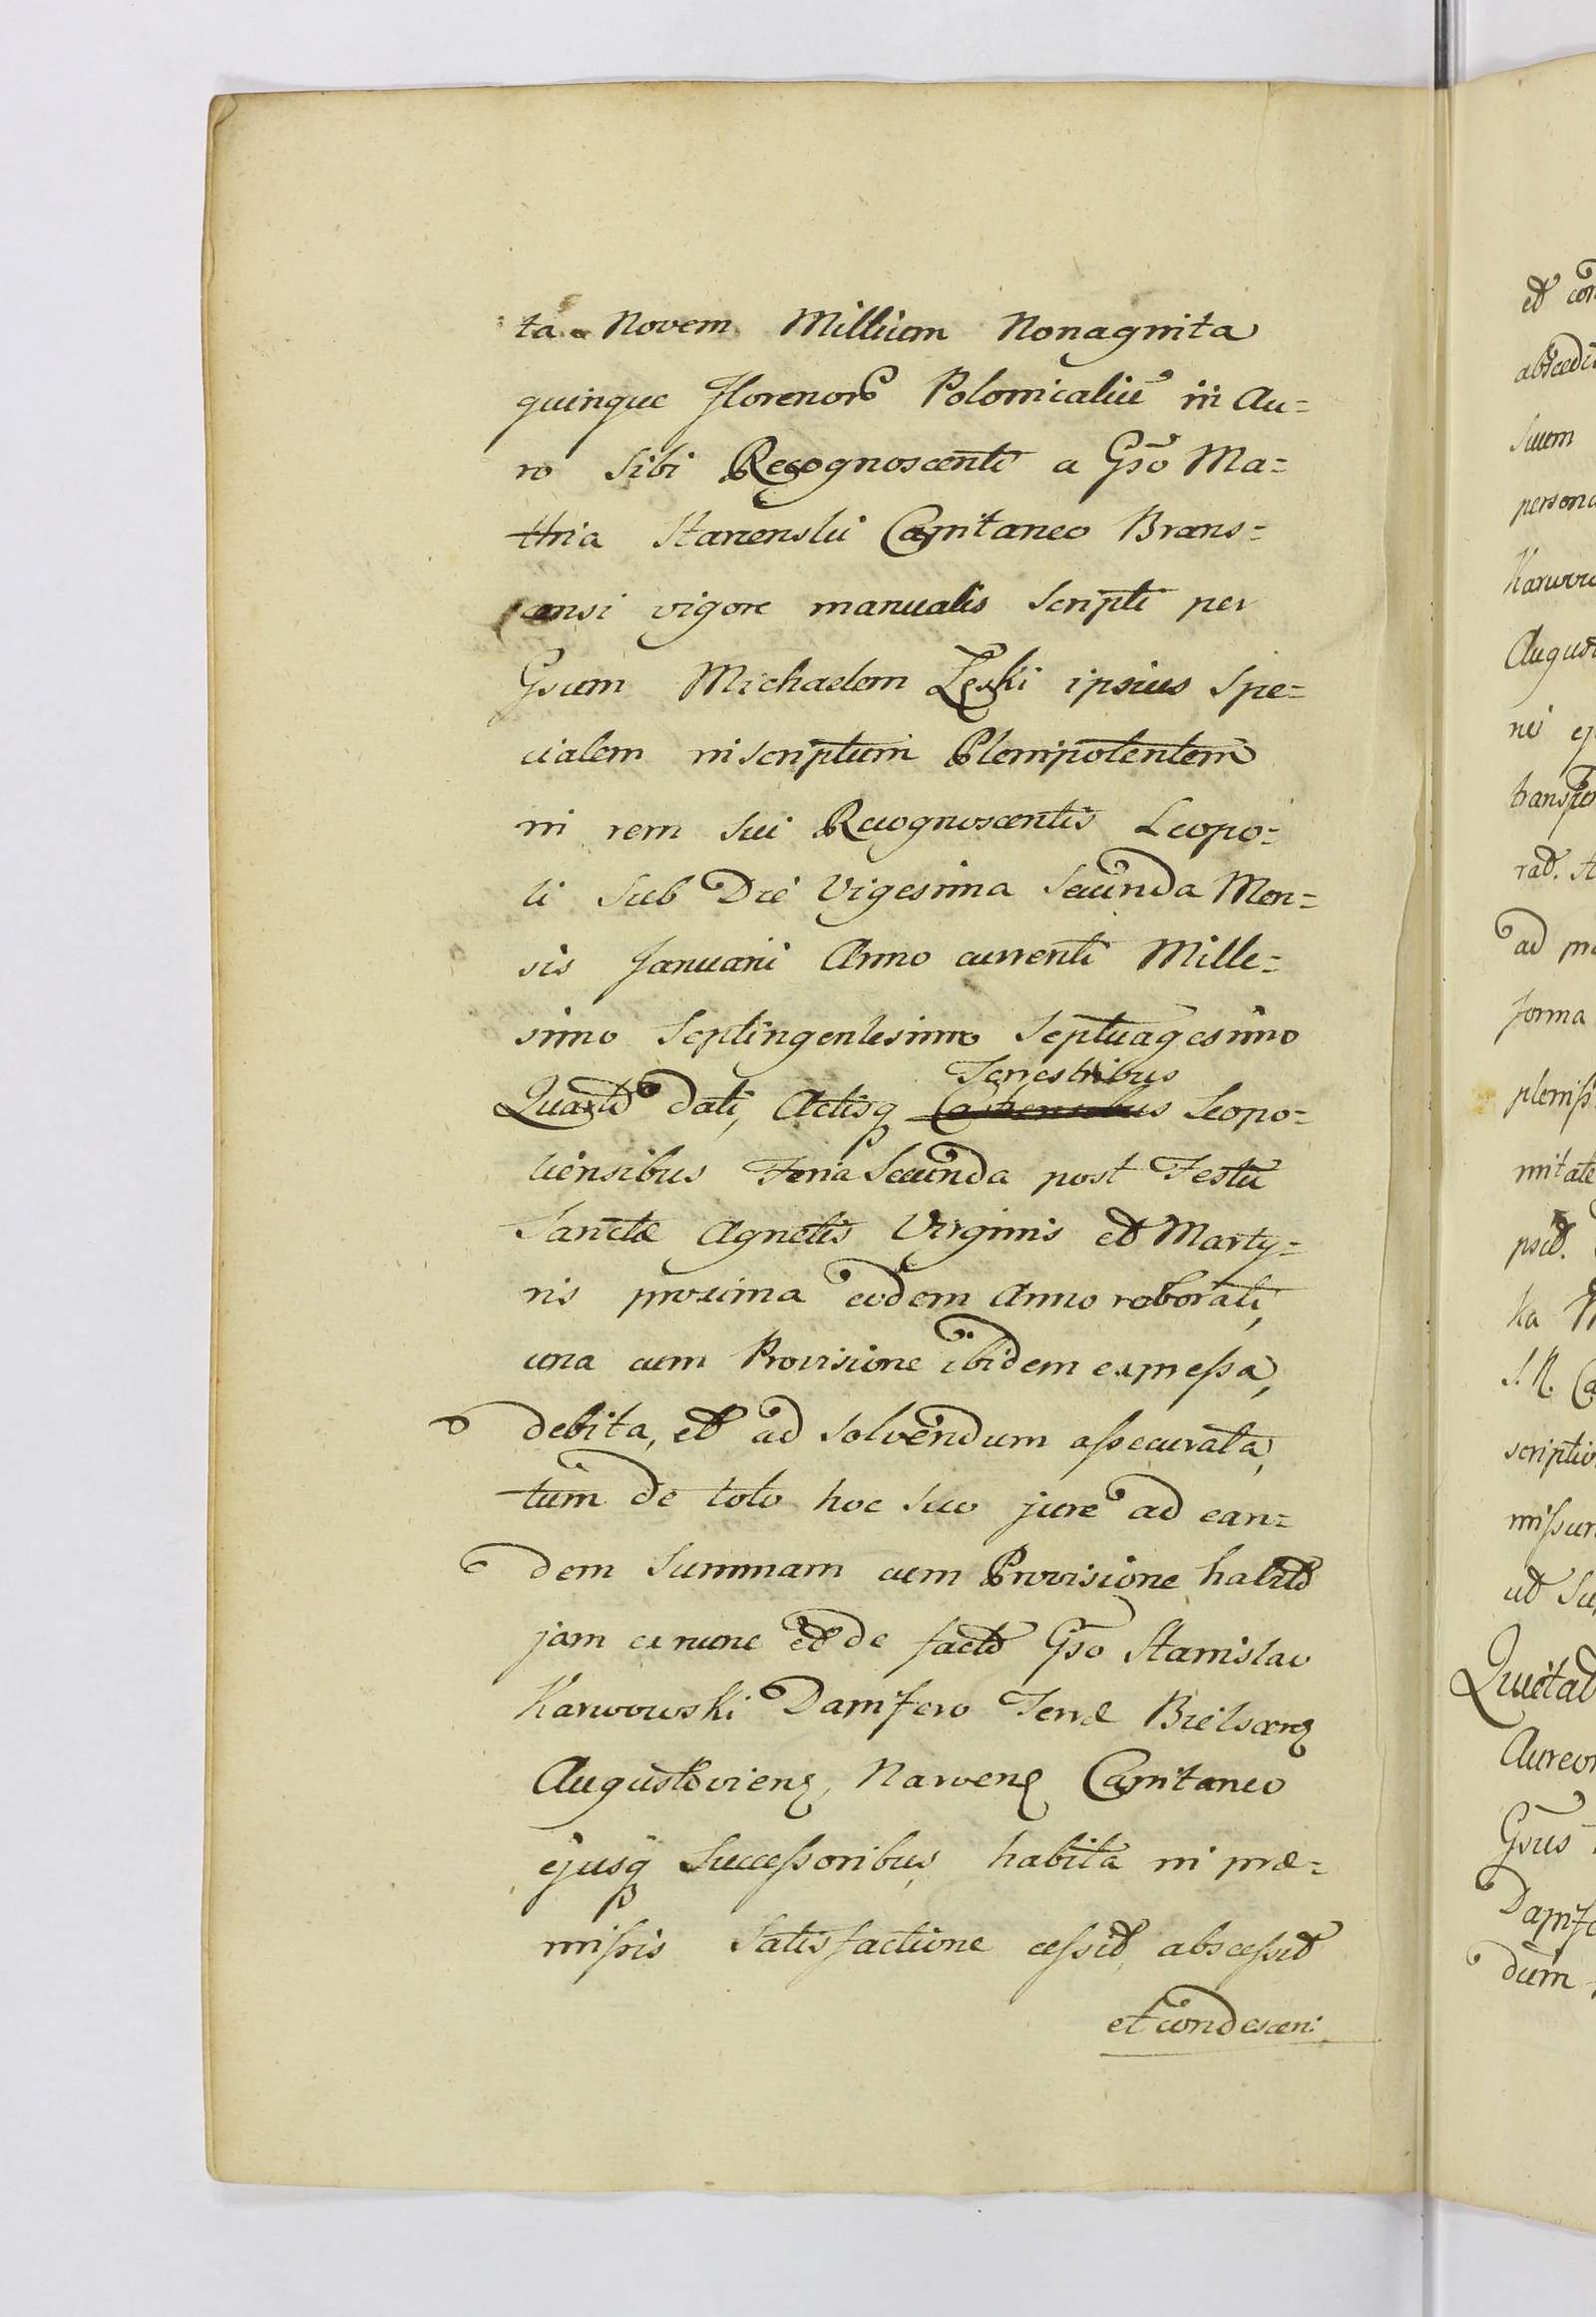 ta Novem Millium Nonaginta
quinque Florenor Polonicaliū in Au=
ro sibi Recognoscenti a Gso Ma=
thia Starzenski Capitaneo Brans=
censi vigore manualis Scripti per
Gsum Michaelem Leski ipsius Spe=
cialem inscriptum Plenipotentem
in rem sui Recognoscentis Leopo=
li sub Die Vigesima Secunda Men=
sis Januarii Anno currenti Mille=
simo Septingentesimo Septuagesimo
Terrestribus
Quarto dati, Actisq Castrensibus Leopo=
liensibus Feria Secunda post Festū
Sanctæ Agnetis Virginis et Marty=
ris proxima eodem Anno roborati,
una cum Provisione ibidem expressa,
debita, et ad solvendum assecurata,
tum de toto hoc suo jure ad ean=
dem Summam cum Provisione habito
jam ex nunc et de facto Gso Stanislao
Karwowski Dapifero Terræ Bielscen
Augustovien, Narven Capitaneo
ejusq Successoribus, habita in præ=
missis Satisfactione cessit, abscessit
et condescen:
et con
abscedi
suum
persona
Karwow
Augus
nis
transfu
rat. St
ad pr
forma
pleniss
mitate
psit.
ka
S. R. Ca
scriptio
missum
ut Su
Quietat
Aureor
Gsus
Dapife
dum